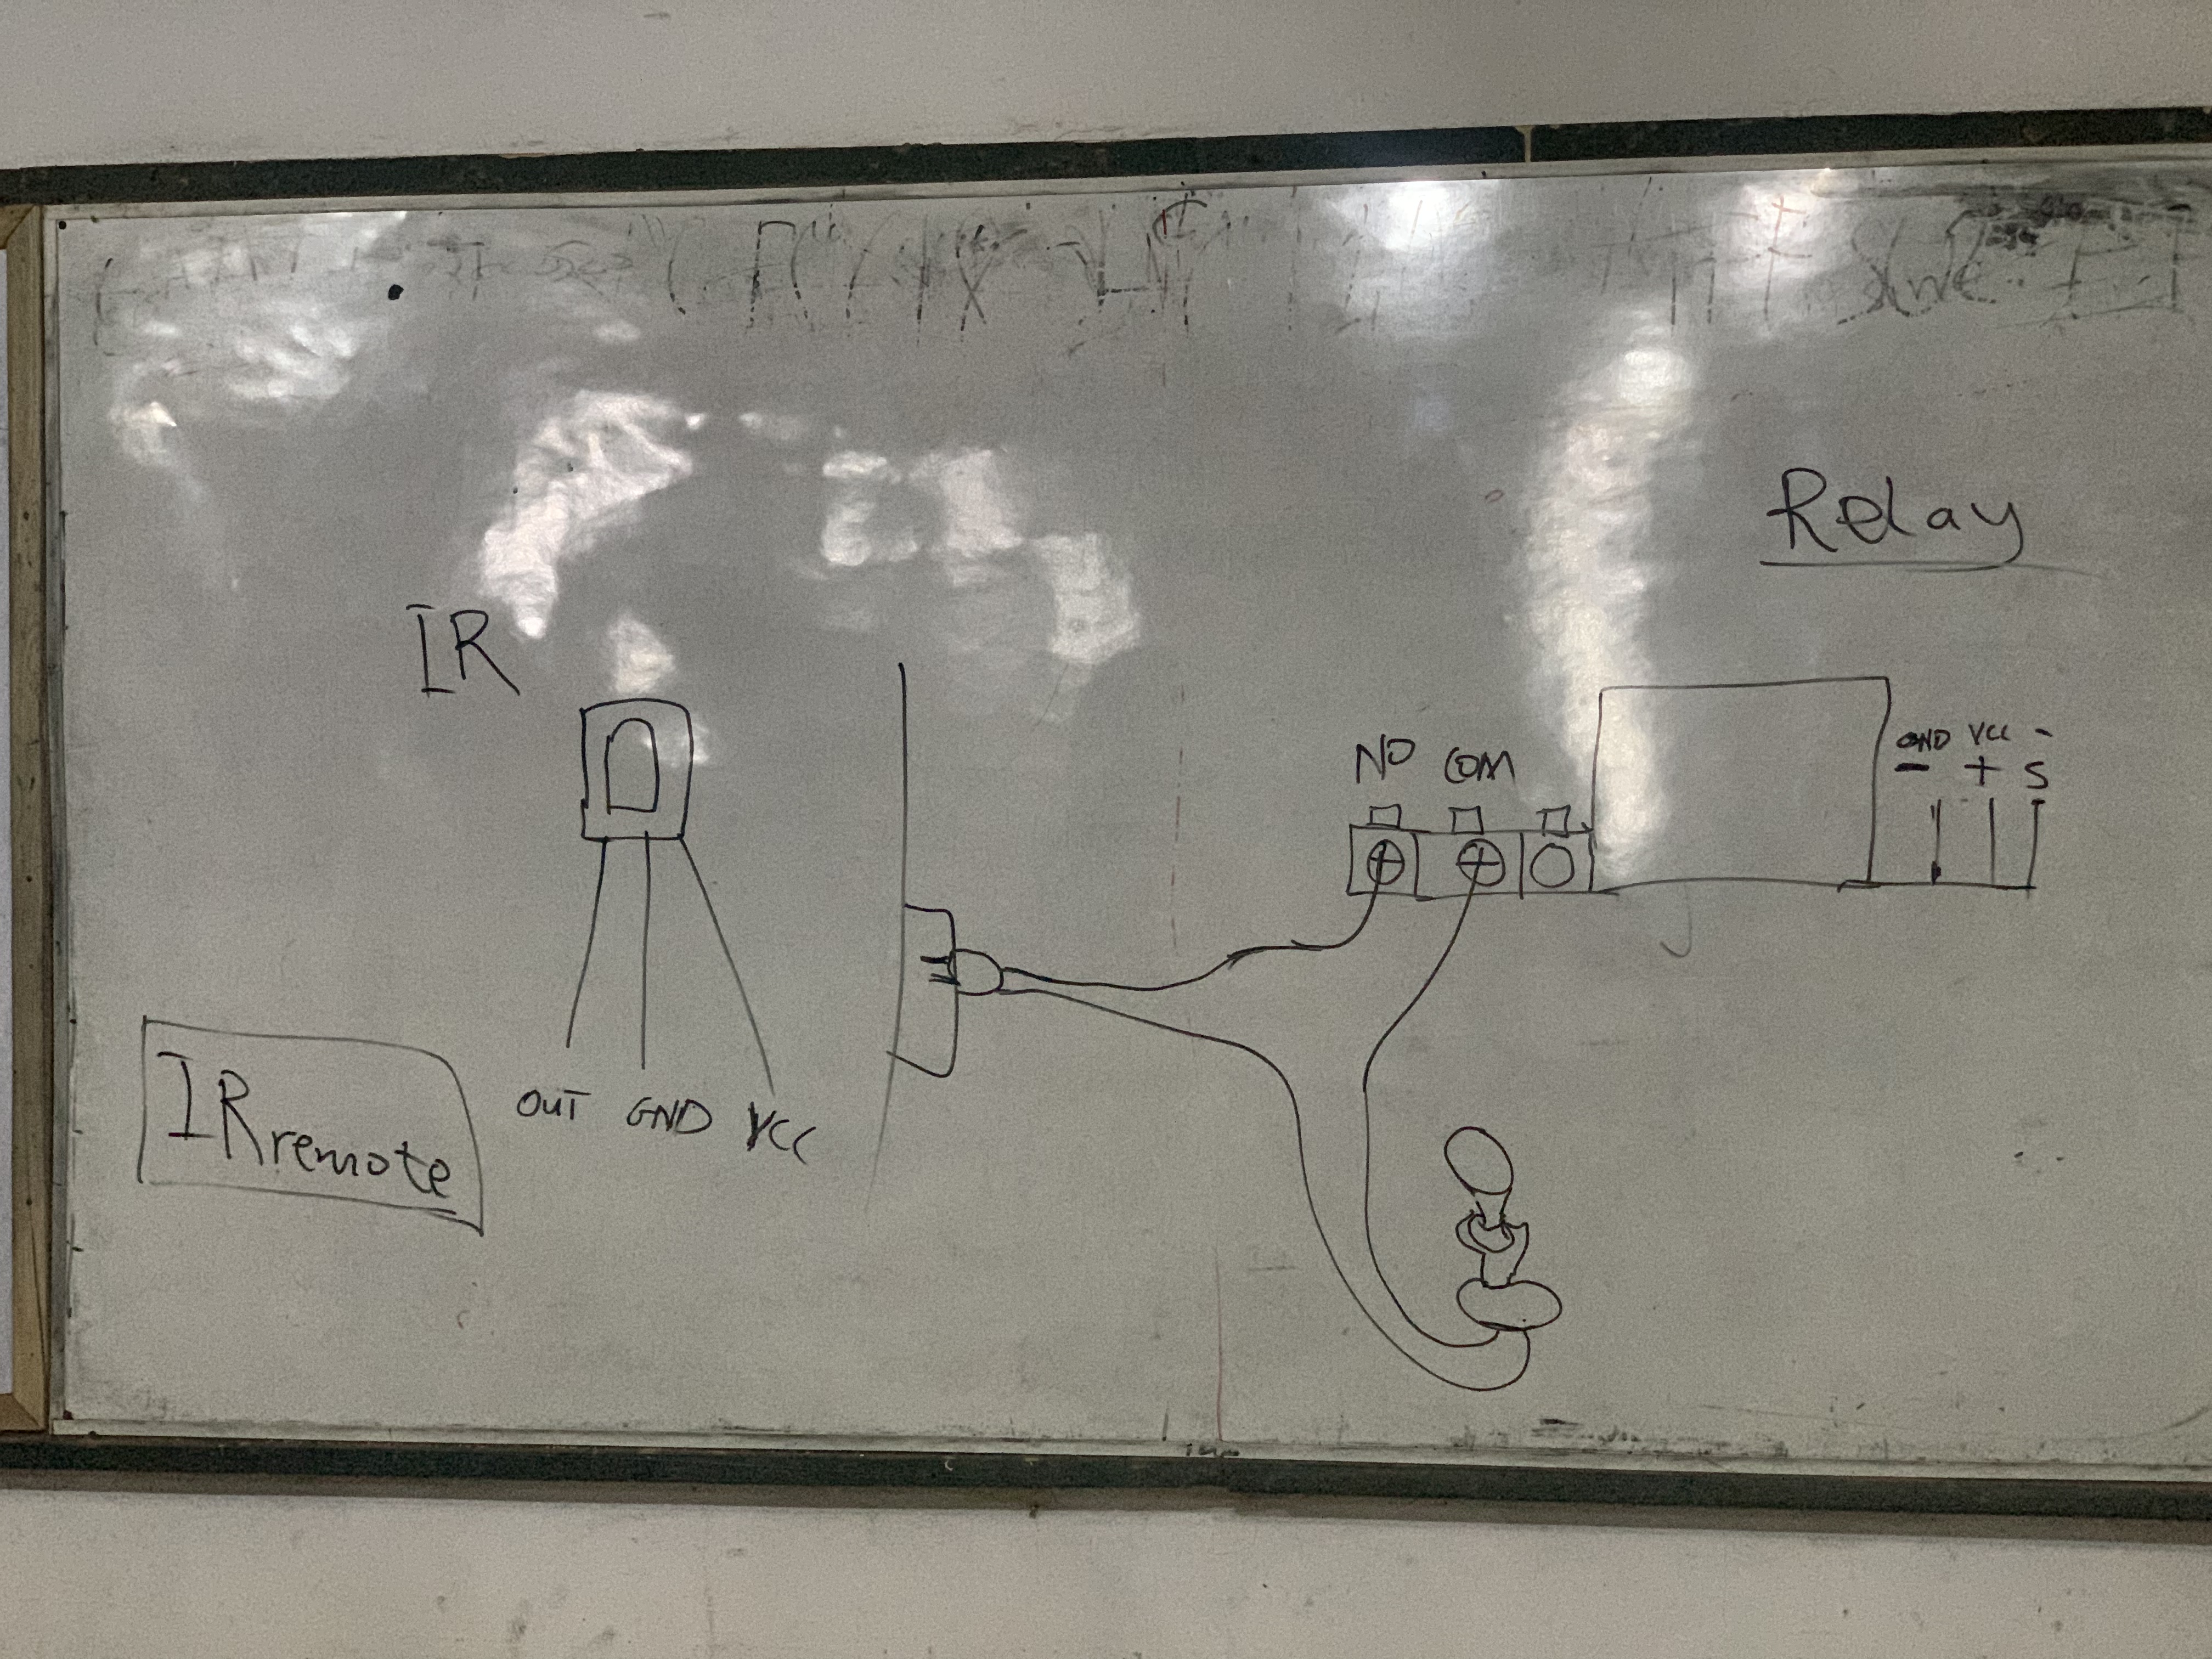 Relay
IR
NO COM
GND VCC -
- + S
IRremote
OUT GND VCC